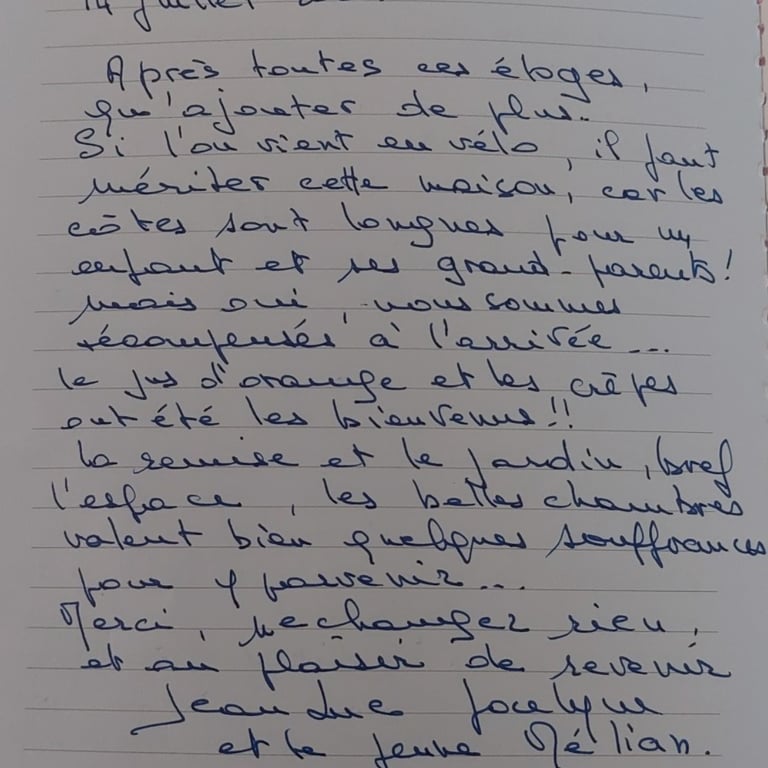 14 juillet
Après toutes ces éloges,
qu'ajouter de plus.
Si l'on vient en vélo, il faut
mériter cette maison, car les
côtes sont longues pour un
enfant et ses grand-parents!
mais oui, nous sommes
récompensés à l'arrivée...
le jus d'orange et les crêpes
ont été les bienvenus!!
La remise et le jardin, bref
l'espace, les belles chambres
valent bien quelques souffrances
pour y parvenir...
Merci, ne changez rien,
et au plaisir de revenir
Jean Luc Jocelyne
et le jeune Mélian.